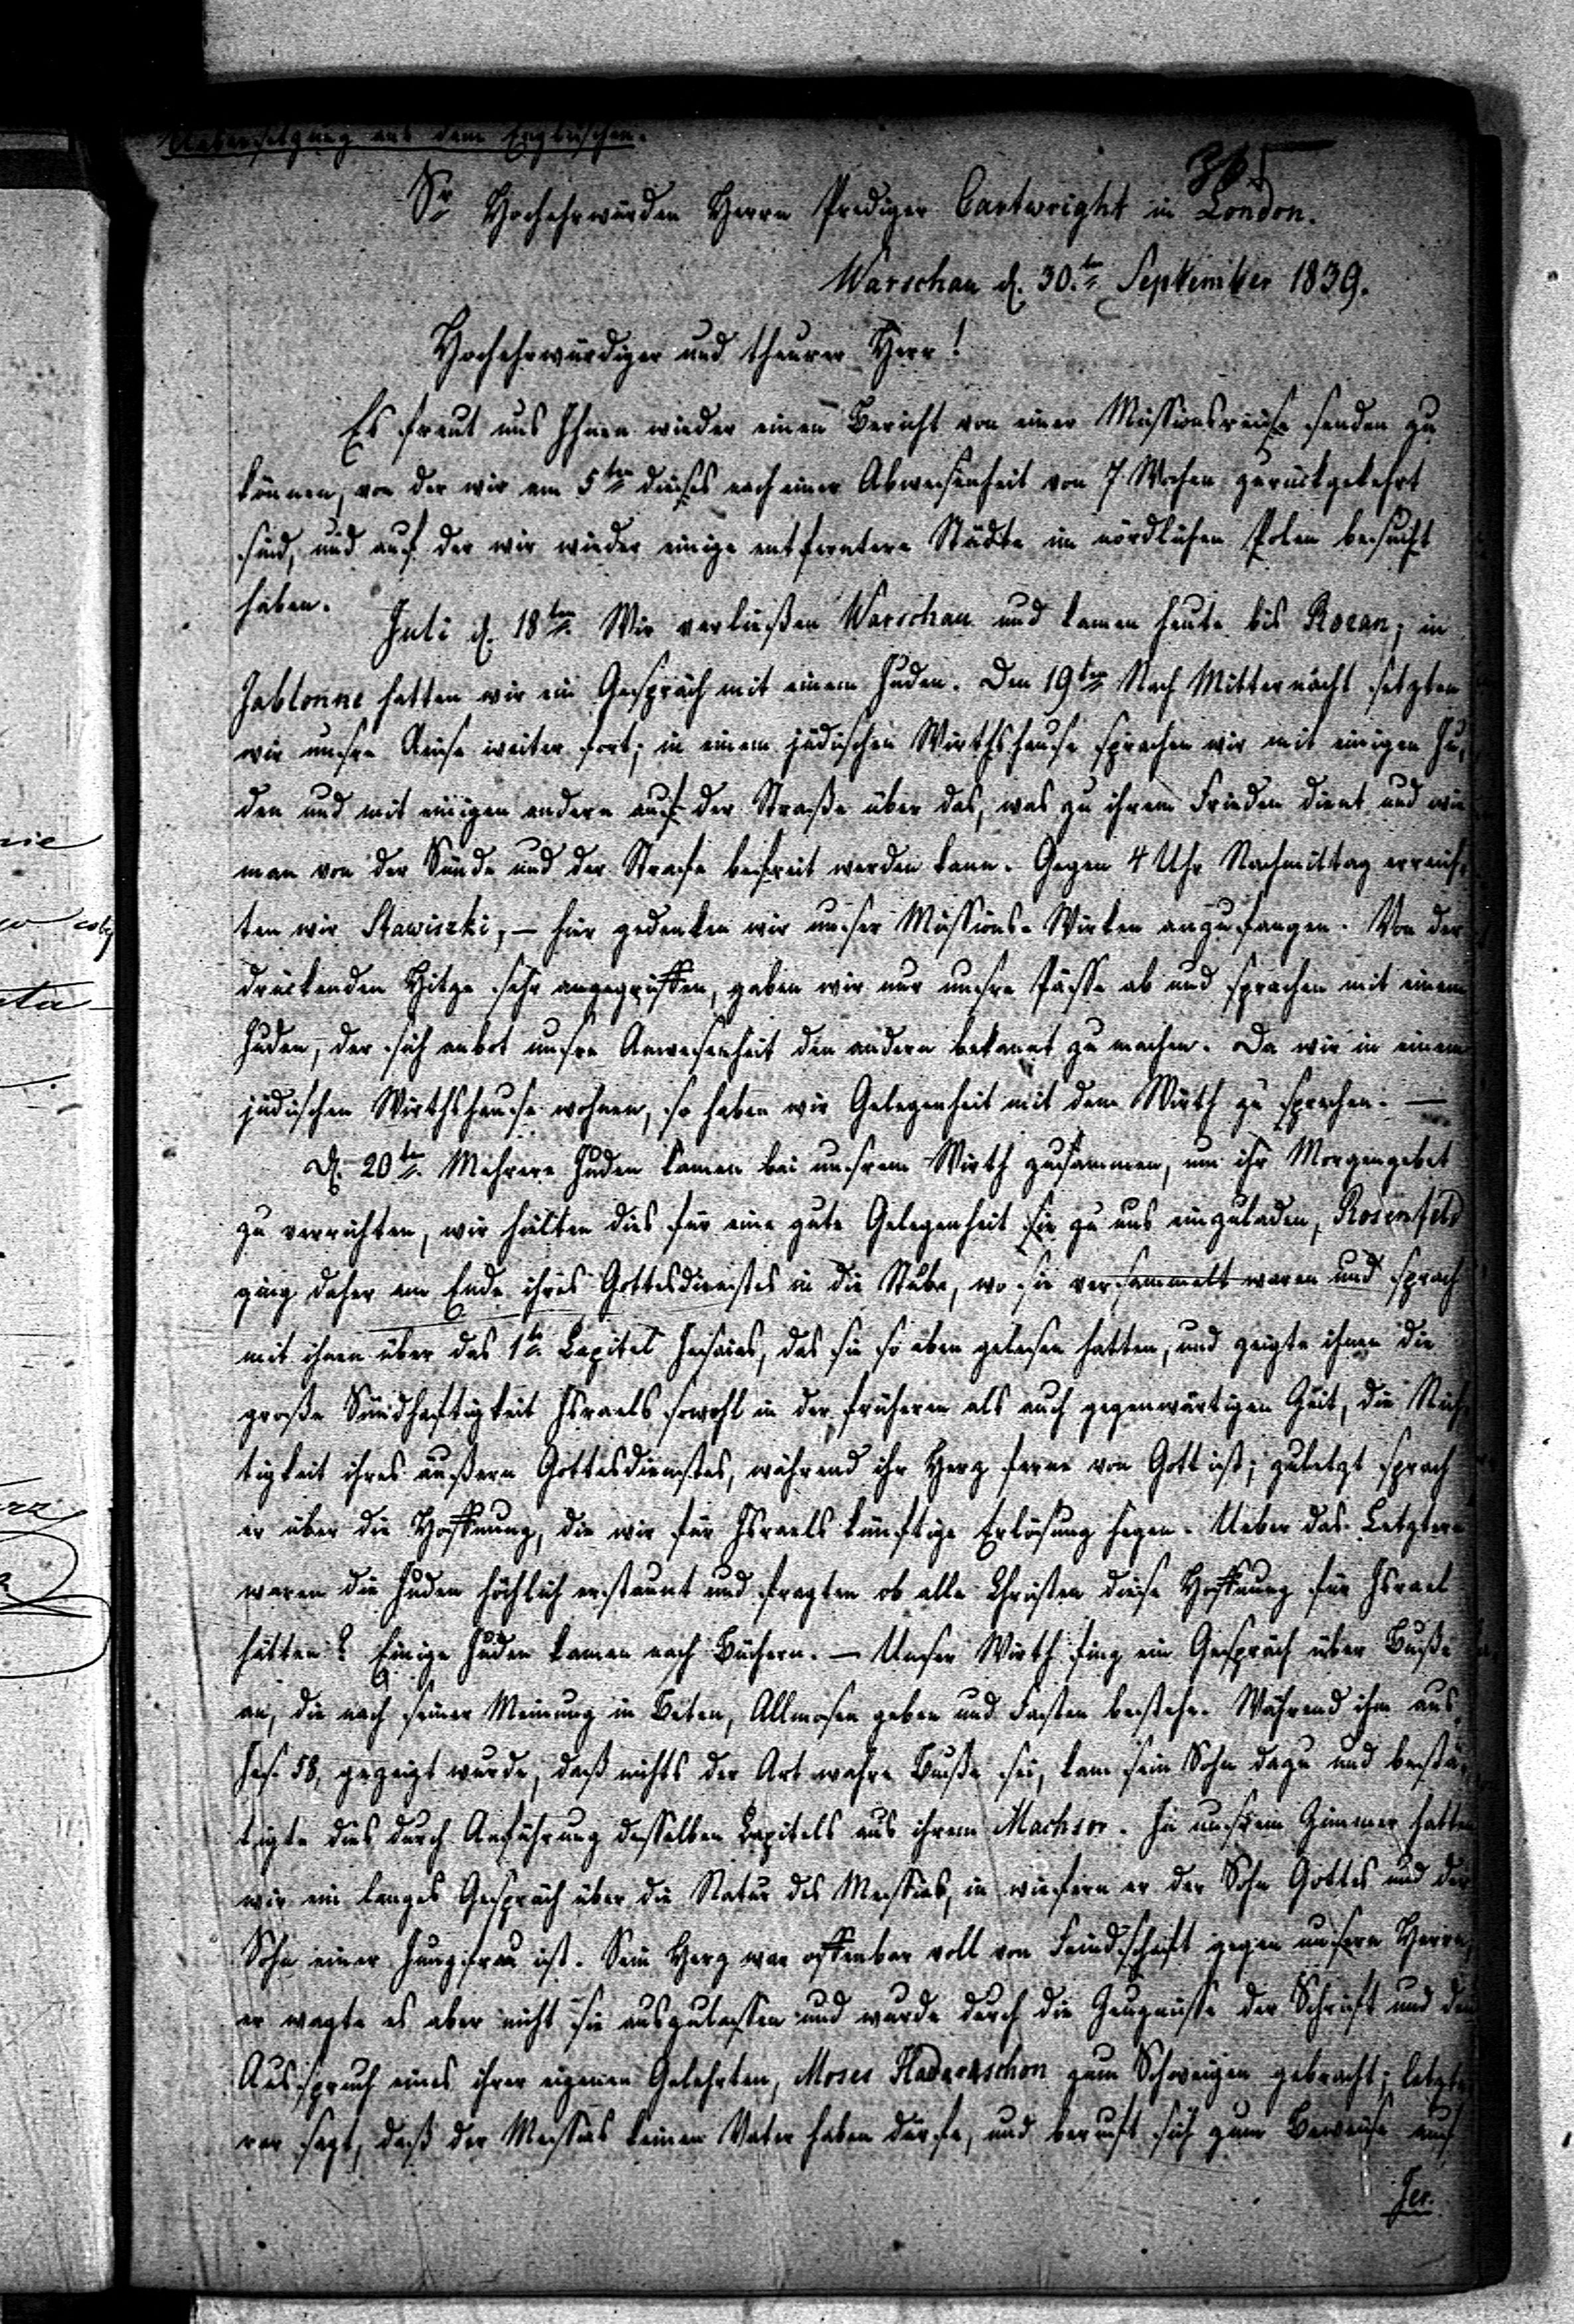 Uebersetzung aus dem Englischen.
365
Sr Hochehrwürden Herrn Prediger Cartwright in London.
Warschau d. 30.ten September 1839.
Hochehrwürdiger und theurer Herr!
Es freut uns Ihnen wieder einen Bericht von einer Missionsreise senden zu
können, von der wir am 5ten dieses nach einer Abwesenheit von 7 Wochen zurückgekehrt
sind, und auf der wir wieder einige entferntere Städte im nördlichen Polen besucht
haben.
Juli d. 18ten. Wir verließen Warschau und kamen heute bis Rozan; in
Jablonne hatten wir ein Gespräch mit einem Juden. Den 19ten Nach Mitternacht setzten
wir unsre Reise weiter fort; in einem jüdischen Wirthshause sprachen wir mit einigen Ju-
den und mit einigen andern auf der Straße über das, was zu ihrem Frieden dient und wie
man von der Sünde und der Strafe befreit werden kann. Gegen 4 Uhr Nachmittag erreich-
ten wir Stawiszki, – hier gedenken wir unser Missions-Wirken anzufangen. Von der
drückenden Hitze sehr angegriffen, gaben wir nur unsre Pässe ab und sprachen mit einem
Juden, der sich anbot unsre Anwesenheit den andern bekannt zu machen. Da wir in einem
jüdischen Wirthshause wohnen, so haben wir Gelegenheit mit dem Wirth zu sprechen. —
d. 20ten. Mehrere Juden kamen bei unsrem Wirth zusammen, um ihr Morgengebet
zu verrichten, wir hielten dies für eine gute Gelegenheit sie zu uns einzuladen, Rosenfeld
ging daher am Ende ihres Gottesdienstes in die Stube, wo sie versammelt waren und sprach
mit ihnen über das 1te Capitel Jesaias, das sie so eben gelesen hatten, und zeigte ihnen die
große Sündhaftigkeit Israels sowohl in der früheren als auch gegenwärtigen Zeit, die Nich-
tigkeit ihres äußern Gottesdienstes, während ihr Herz ferne von Gott ist; zuletzt sprach
er über die Hoffnung, die wir für Israels künftige Erlösung hegen. Ueber das Letztere
waren die Juden höchlich erstaunt und fragten ob alle Christen diese Hoffnung für Israel
hätten? Einige Juden kamen nach Büchern. – Unser Wirth fing ein Gespräch über Buße
an, die nach seiner Meinung in Beten, Allmosen geben und Fasten bestehe. Während ihm aus
Jes. 58, gezeigt wurde, daß nichts der Art wahre Buße sei, kam sein Sohn dazu und bestä-
tigte dies durch Anführung desselben Capitels aus ihrem Machsor. In unsrem Zimmer hatten
wir ein langes Gespräch über die Natur des Messias, in wiefern er der Sohn Gottes und der
Sohn einer Jungfrau ist. Sein Herz war offenbar voll von Feindschaft gegen unsern Herrn,
er wagte es aber nicht sie auszulassen und wurde durch die Zeugnisse der Schrift und den
Ausspruch eines ihrer eigenen Gelehrten, Moses Hadarschon zum Schweigen gebracht; letzte-
rer sagt, daß der Messias keinen Vater haben dürfe, und beruft sich zum Beweise auf
Jer.